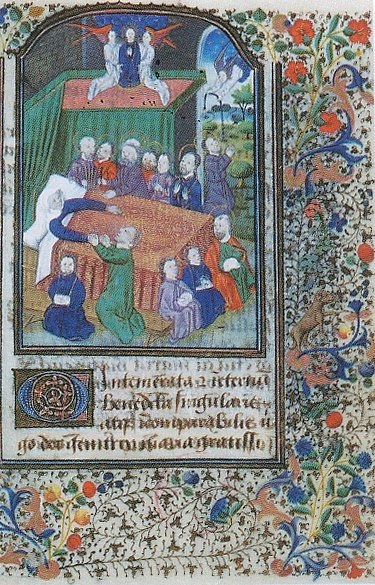 O intemerata ⁊ i eternū
benedicta singularis
atqꝫ incomparabilis u
go dei genitrix maria gratissi